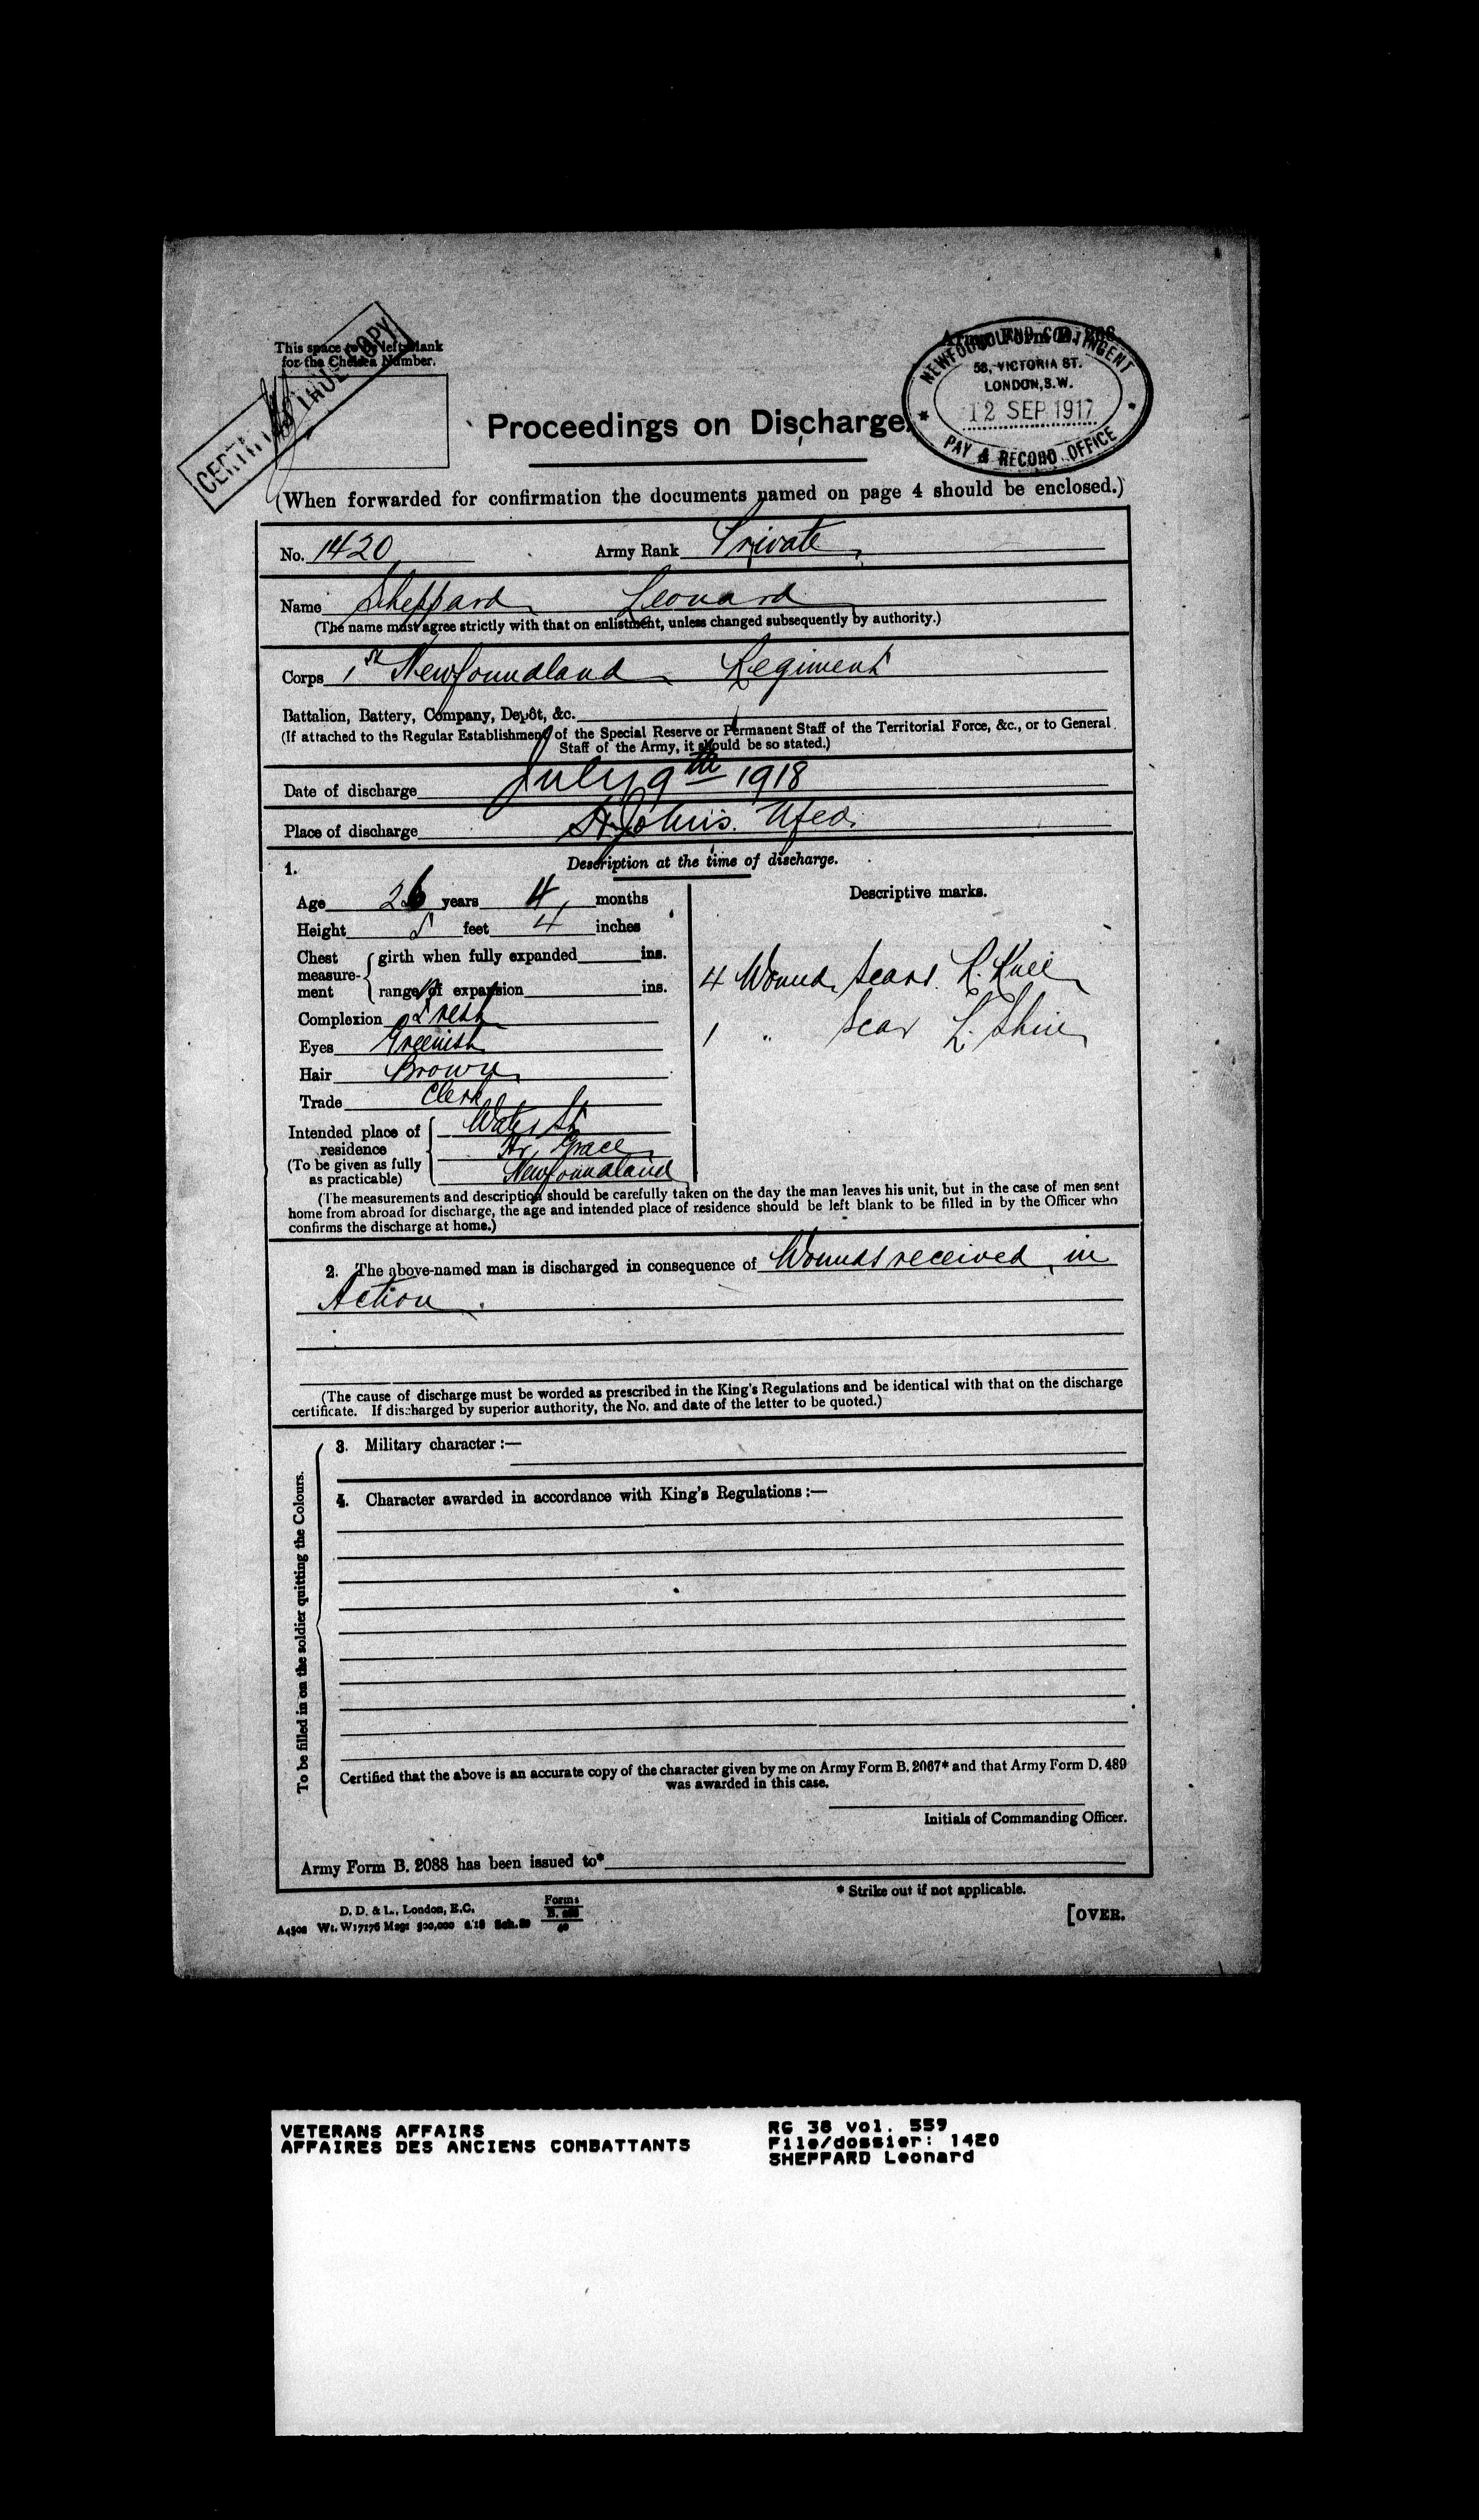 This space to be left blank
for the Chelsea Number.
CERTIFIED TRUE COPY
NEWFOUNDLAND CONTINGENT
58, VICTORIA ST.
LONDON, S.W.
12 SEP 1917
PAY & RECORD OFFICE
Proceedings on Discharge.
(When forwarded for confirmation the documents named on page 4 should be enclosed.)
No. 1420 Army Rank Private
Name Sheppard Leonard
(The name must agree strictly with that on enlistment, unless changed subsequently by authority.)
Corps 1st Newfoundland Regiment
Battalion, Battery, Company, Depôt, &c.
(If attached to the Regular Establishment of the Special Reserve or Permanent Staff of the Territorial Force, &c., or to General
Staff of the Army, it should be so stated.)
Date of discharge July 9th 1918
Place of discharge St. John's. Nfld.
1. Description at the time of discharge.
Age 26 years 4 months
Height 5 feet 4 inches
Chest measurement { girth when fully expanded ins.
range of expansion ins.
Complexion Fresh
Eyes Greenish
Hair Brown
Trade Clerk
Intended place of residence (To be given as fully as practicable) Water St
Hr. Grace
Newfoundland
Descriptive marks.
4 Wound Scars R. Knee
1 " Scar L. Shin
(The measurements and description should be carefully taken on the day the man leaves his unit, but in the case of men sent
home from abroad for discharge, the age and intended place of residence should be left blank to be filled in by the Officer who
confirms the discharge at home.)
2. The above-named man is discharged in consequence of Wounds received in
Action.
(The cause of discharge must be worded as prescribed in the King's Regulations and be identical with that on the discharge
certificate. If discharged by superior authority, the No. and date of the letter to be quoted.)
To be filled in on the soldier quitting the Colours.
3. Military character :—
4. Character awarded in accordance with King's Regulations :—
Certified that the above is an accurate copy of the character given by me on Army Form B. 2067* and that Army Form D. 489
was awarded in this case.
Initials of Commanding Officer.
Army Form B. 2088 has been issued to*
* Strike out if not applicable.
D. D. & L., London, E.C.
Forms
[OVER.
VETERANS AFFAIRS
AFFAIRES DES ANCIENS COMBATTANTS
RG 38 vol. 559
File/dossier: 1420
SHEPPARD Leonard